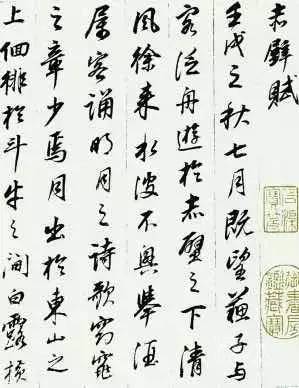 赤壁賦
壬戌之秋七月既望蘇子与
客泛舟遊於赤壁之下清
風徐来水波不興舉酒
属客誦明月之詩歌窈窕
之章少焉月出於東山之
上佪徘於斗牛之間白露橫
御書房鑑藏寶